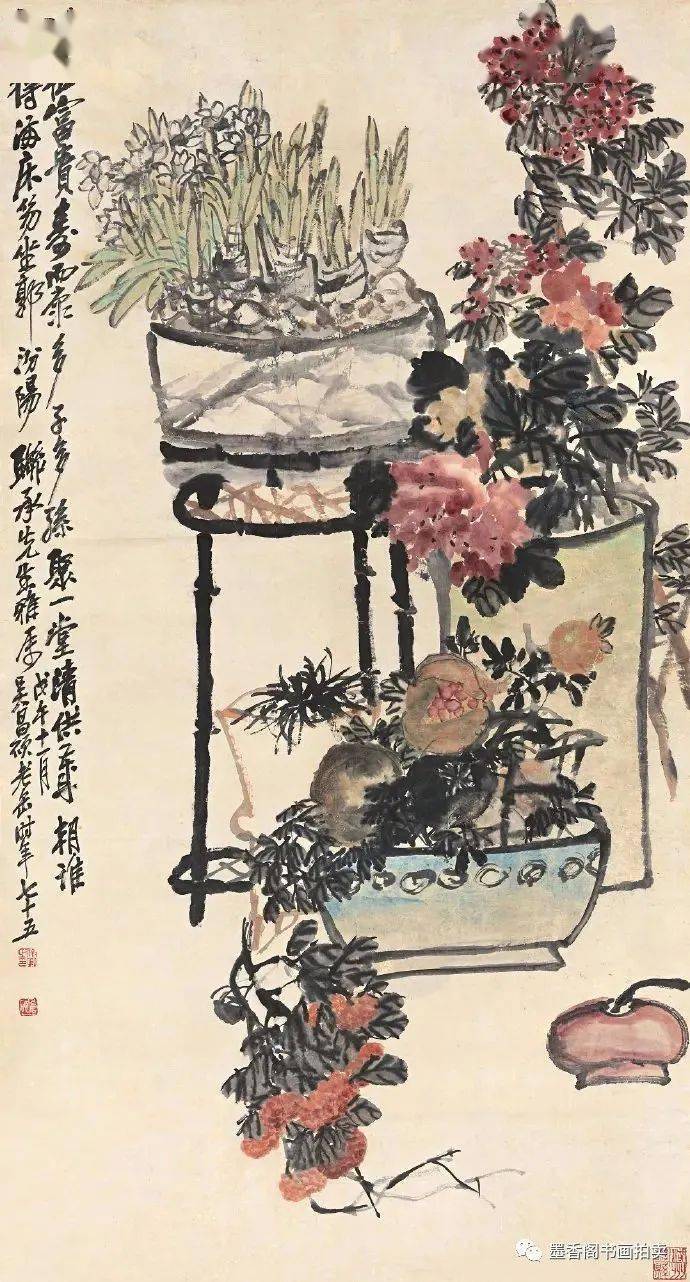 富貴壽而康多子多孫聚一堂清供朝誰
得滿床笏坐郭汾陽聯承先生雅屬
戊午十一月
吳昌碩老缶時年七十五
墨香阁书画拍卖